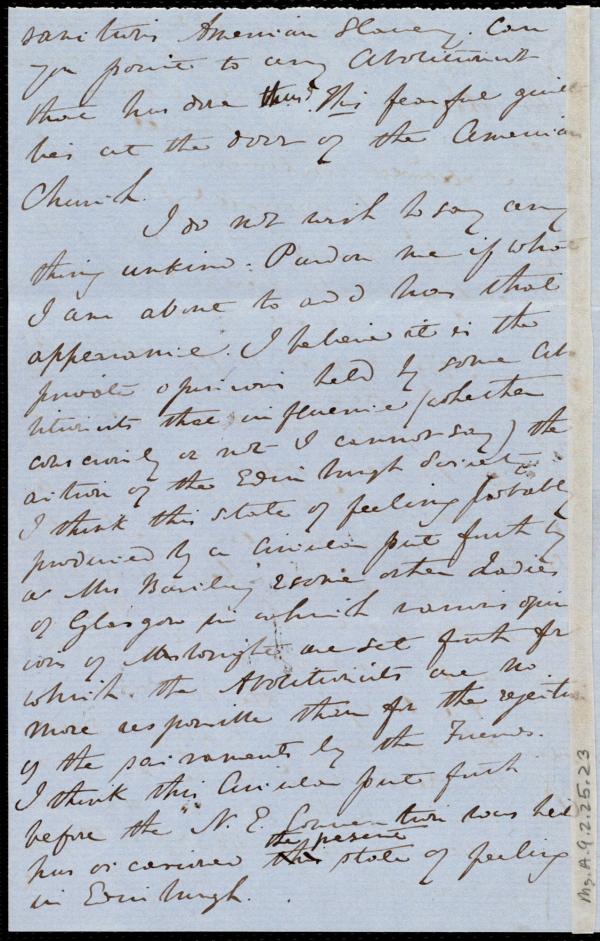 sanctions American Slavery. Can
you point to any Abolitionist
that has done thus? This fearful guilt
lies at the door of the American
Church.
I do not wish to say any
thing unkind. Pardon me if what
I am about to add has that
appearance. I believe it is the
private opinions held by some Ab
litionists that influence (whether
consciously or not I cannot say) the
action of the Edinburgh Society
I think this state of feeling probably
produced by a Circular put forth by
a Mrs & some other Ladies
of Glasgow in which various opin
ions of Mr Wright are set forth for
which the Abolitionists are no
more responsible than for the rejection
of the sacraments by the Friends.
I think this Circular put forth
before the "N. E. Convention was held
has occasioned the present state of feeling
in Edinburgh.
Ms. A. 9. 2. 25. 23